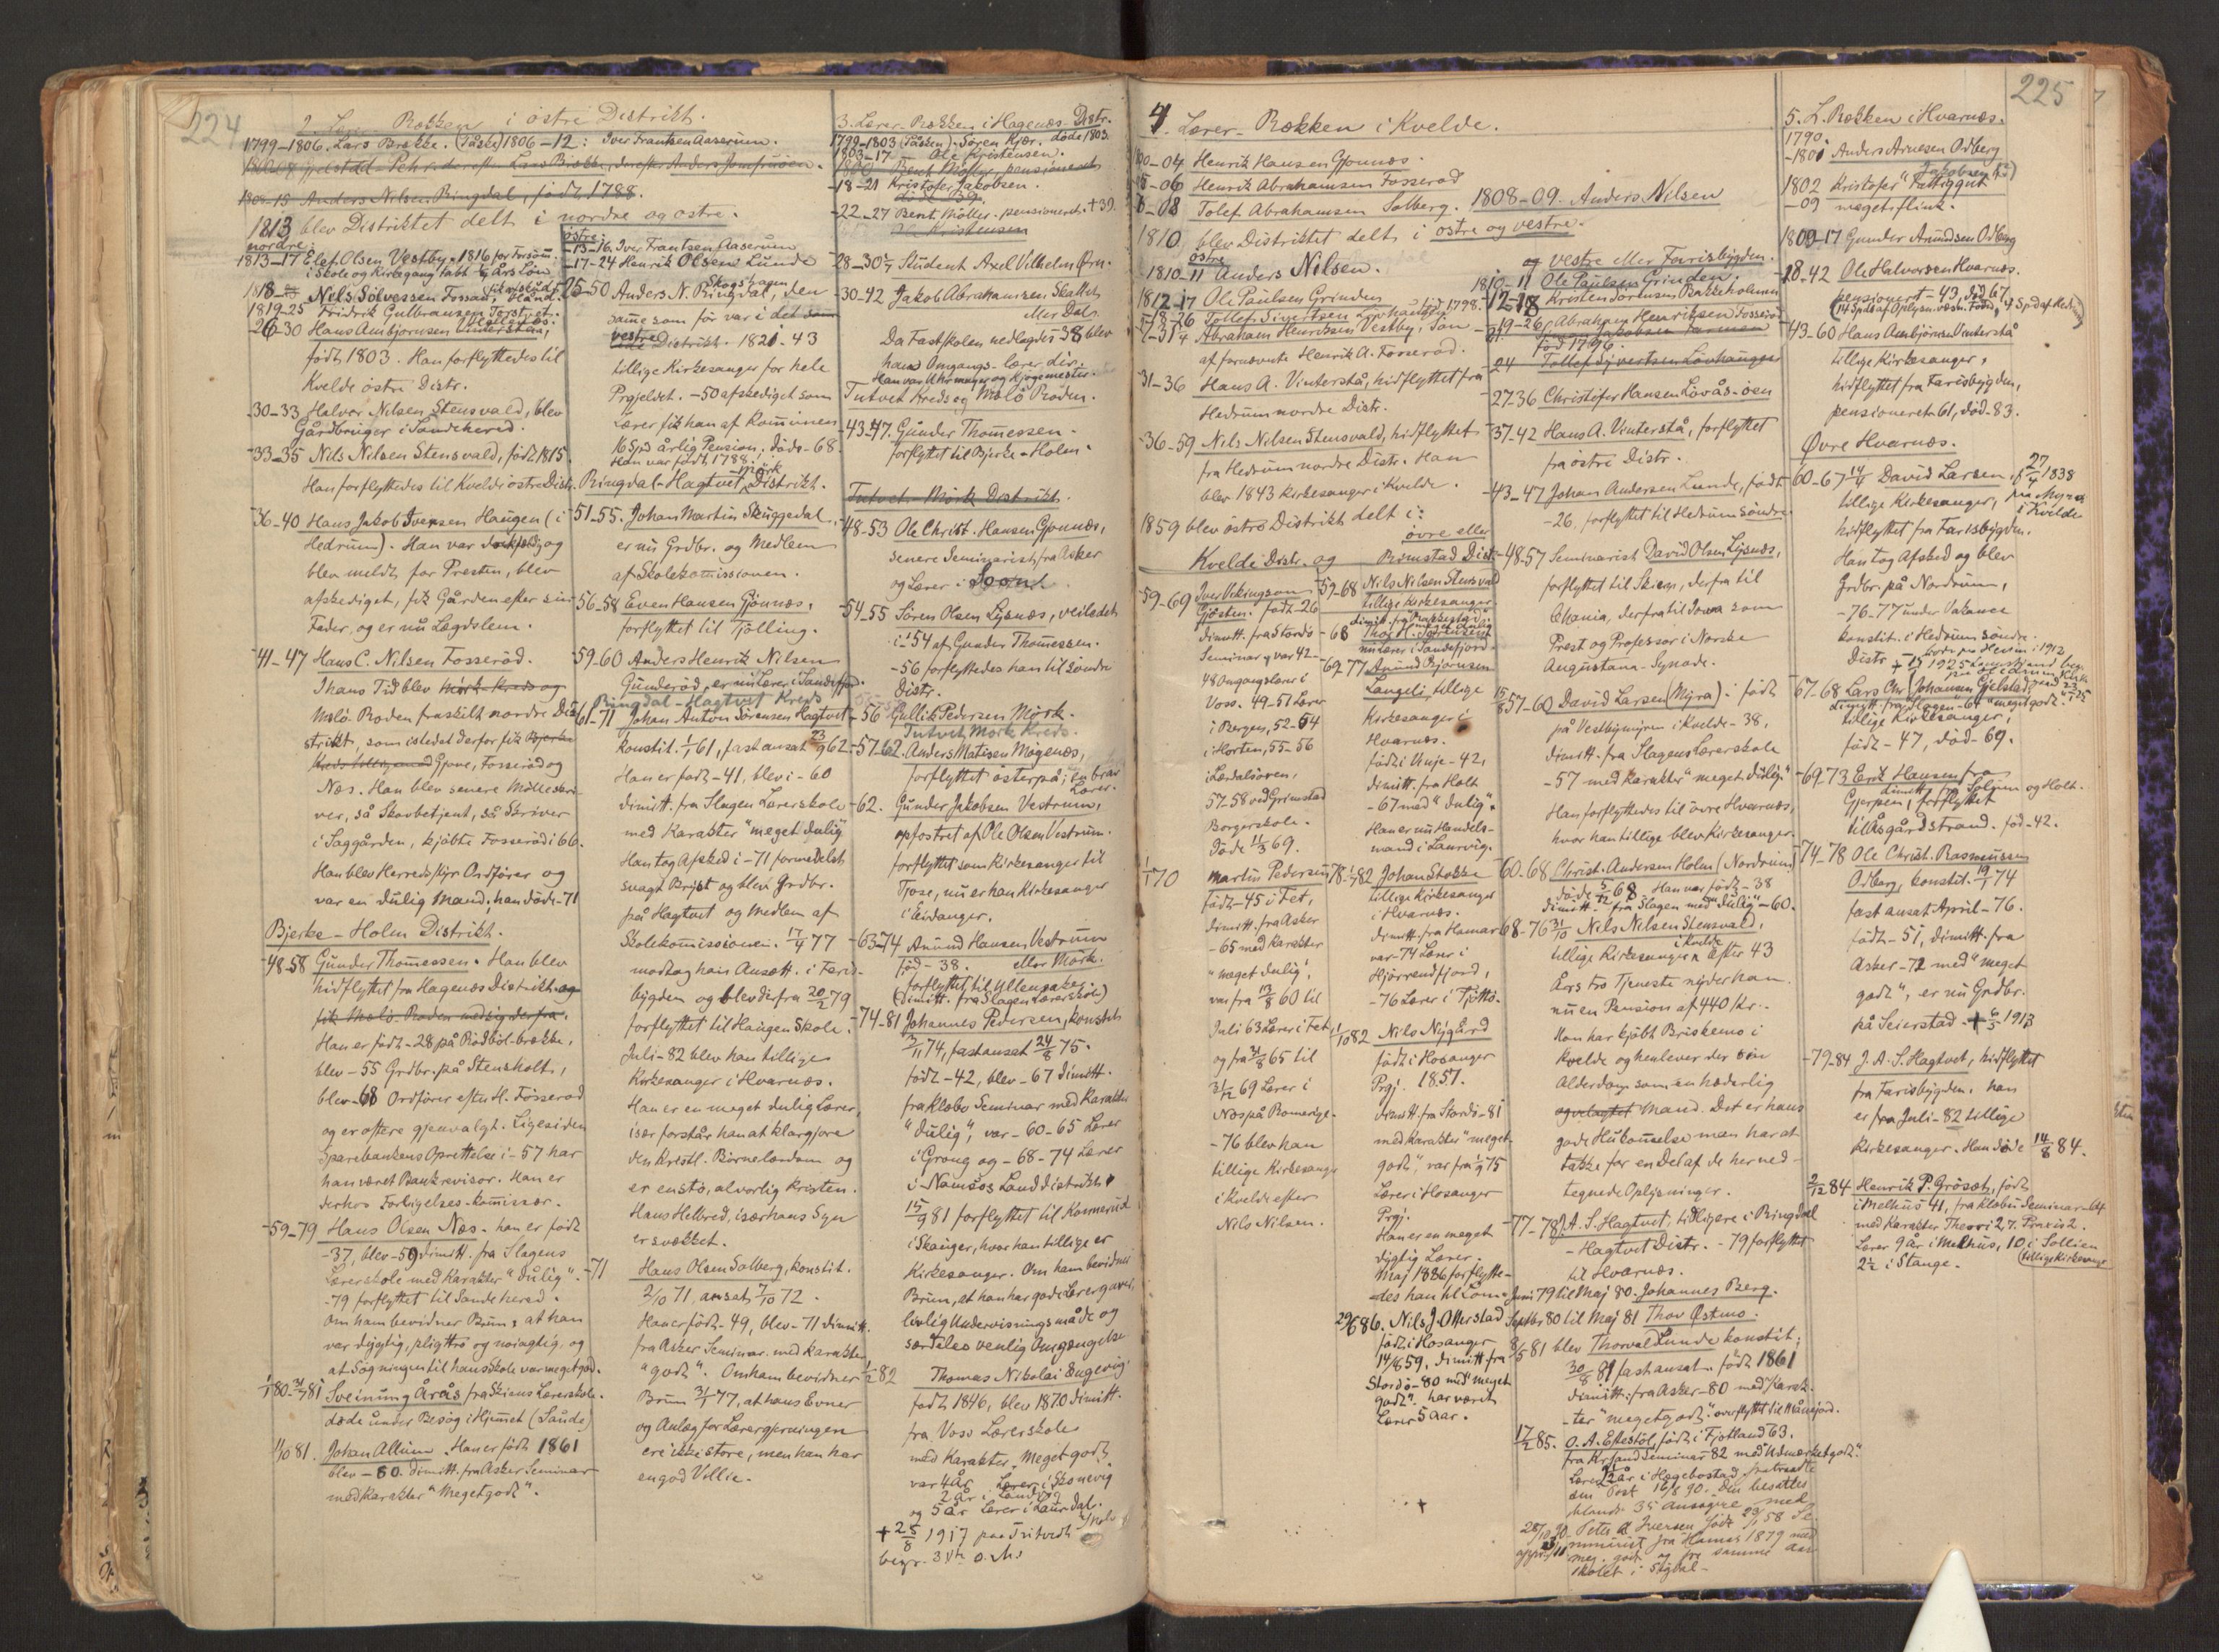 224
2. Lærer-Rækken i østre Distrikt.
1799-1806. Lars Brække. (Påske) 1806-12: Iver Frantsen Aaserum.
1813 blev Distriktet delt i nordre og østre.
nordre:
1813-17 Elef Olsen Vestby - 1816 for Forsøm.
i Skole og Kirkegang tabt ½ Års Løn
1818- Nils Sölvessen Fossan,
1819-25 Fridrik Gulbransen
-26-30 Hans Ambjörnsen Vinterstøa,
født 1803. Han forflyttedes til
Kvelde östre Distr.
-30-33 Halvor Nilsen Stensvald, blev
Gårdbruger i Sandeherred.
-33-35 Nils Nilsen Stensvald, født 1815.
Han forflyttedes til Kvelde östre Distr.
-36-40 Hans Jakob Iversen Haugen (i
Hedrum). Han var og
blev meldt for Presten, blev
afskediget, fik Gården efter sin
Fader, og er nu Lægdslem.
-41-47 Hans C. Nilsen Fosseröd.
I hans Tid blev Mörk-Kreds og
Melö-Roden fraskilt nordre Di-
strikt, som istedet derfor fik Bjerke
Gjone, Fosseröd og
Næs. Han blev senere Mölleskri-
ver, så Skovbetjent, så Skriver
i Saggården, kjöbte Fosseröd i 66.
Han blev Herredsstyr. Ordförer og
var en dulig Mand; han döde -71
Bjerke-Holm Distrikt.
-48-58 Gunder Thomessen. Han blev
hidflyttet fra Hagenæs Distrikt og
fik Melö-Roden med sig derfra.
Han er født -28 på Rödböl-brække,
blev -55 Grdbr. på Stensholt,
blev -68 Ordförer efter H. Fosseröd
og er oftere gjenvalgt. Ligesiden
Sparebankens Oprettelse i -57 har
han været Bankrevisor. Han er
derhos Forligelses-kommissær.
-59-79 Hans Olsen Næs. han er født
-37, blev -59 dimitt. fra Slagens
Lærerskole med Karakter "dulig".
-79 forflyttet til Sandeherred.
Om ham bevidner Brun, at han
var dygtig, pligttro og nöiagtig, og
at Sögningen til hans Skole var meget god.
1/1 80-31/7 81 Sveinung Årås fra Skiens Lærerskole.
döde under Besög i Hjemmet (Saude)
1/10 81. Johan Allum. Han er født 1861
blev -80. dimitt. fra Asker Seminar
med Karakter "Meget godt".
östre:
-13-16. Iver Frantsen Aaserum
-17-24 Henrik Olsen Lunde
Skogshagen
25-50 Anders N. Ringdal, den
samme som før var i det
vestre Distrikt. 1821-43
tillige Kirkesanger for hele
Prgjeldet. -50 afskediget som
Lærer fik han af Kommunen
16 Spd årlig Pension. döde -68.
Han var født 1788.
Ringdal-Hagtvet Mörk Distrikt.
51-55. Johan Martin Skuggedal
er nu Grdbr. og Medlem
af Skolekommissionen.
-56-58 Even Hansen Gjönnæs,
forflyttet til Tjölling.
-59-60 Anders Henrik Nilsen
Gunderöd, er nu Lærer i Sandefjord.
Ringdal-Hagtvet Kreds
61-71 Johan Anton Sörensen Hagtvet
konstit. 1/1 61, fast ansat 23/9 62
Han er født -41, blev i -60
dimitt. fra Slagen Lærerskole
med Karakter "meget dulig"
Han tog Afsked i -71 formedelst
svagt Bryst og blev Grdbr.
på Hagtvet og Medlem af
Skolekommissionen. 17/4 77
modtog han Ansætt. i Faris-
bygden og blev derfra 20/2 79
forflyttet til Haugen Skole.
Juli -82 blev han tillige
Kirkesanger i Hvarnæs.
Han er en meget dulig Lærer,
især forstår han at klargjøre
den kristl. Børnelærdom og
er en stö, alvorlig Kristen.
Hans Helbred, især hans Syn
er svækket.
-71 Hans Olsen Solberg, konstit.
2/10 71, ansat 7/10 72.
Han er født -49, blev -71 dimitt.
fra Asker Seminar med Karakter
"godt". Om ham bevidner
Brun 31/1 77, at hans Evner
og Anlæg for Lærergjerningen
ere ikke store, men han har
en god Villie.
3. Lærer-Rækken i Hagenæs-Distr.
1799-1803 (Påsken) Sören Kjær. døde 1803.
1803-17 Ole Kristensen.
-18-21 Kristofer Jakobsen.
-22-27 Bent Möller. pensioneret. + 39.
28-30 1/7 Student Axel Vilhelm Örn.
-30-42 Jakob Abrahamsen Skallet
eller Dal.
Da Fastskolen nedlagdes 38 blev
han Omgangs-lærer der.
Han var Uhrmager og Kjøgemester.
Tutvet Kreds og Melö Roden.
-43-47. Gunder Thomessen.
forflyttet til Bjerke-Holm.
Tutvet-Mörk Distrikt.
-48-53 Ole Christ. Hansen Gjønnæs,
senere Seminarist fra Asker
og Lærer i
-54-55 Sören Olsen Lysnæs, veiledet
i -54 af Gunder Thomessen.
-56 forflyttedes han til söndre
Distr.
-56 Gullik Pedersen Mörk.
Tutvet Mörk Kreds.
-57-62 Anders Matisen Mogenæs,
forflyttet österpå; en brav
Lærer.
-62. Gunder Jakobsen Vestrum,
opfostret af Ole Olsen Vestrum.
forflyttet som Kirkesanger til
Tjose, nu er han Kirkesanger
i Eidanger.
-63-74 Anund Hansen Vestrum
eller Mörk.
Född -38.
forflyttet til Ullensaker
(dimitt. fra Slagen Lærerskole)
-74-81 Johannes Pedersen, konstit.
3/11 74, fast ansat 24/8 75.
født -42, blev -67 dimitt.
fra Klæbo Seminar med Karakter
"dulig", var -60-65 Lærer
i Grong og -68-74 Lærer
i Namsos Landdistrikt.
15/9 81 forflyttet til Konnerud
i Skauger, hvor han tillige er
Kirkesanger. Om ham bevidner
Brun, at han har gode Lærergaver,
livlig Undervisningsmåde og
særdeles venlig Omgængelse
1/2 82 Thomas Nikolai Engevig
født 1846, blev 1870 dimitt.
fra Voss Lærerskole
med Karakter "Meget godt"
var 4 år Lærer i Skonevig
2 år i
og 5 år Lærer i Laurdal.
+ 25/8 1917 paa Tutvedt Skole
begr. 31te s.M.
225
4. Lærer-Rækken i Kvelde.
-00-04 Henrik Hansen Gjonnæs.
05-06 Henrik Abrahamsen Fosseröd
6-08 Tolef Abrahamsen Solberg. 1808-09. Anders Nilsen
1810 blev Distriktet delt i östre og vestre.
östre
-1810-11 Anders Nilsen.
1812-17 Ole Paulsen Grinden
-18-26 Tollef Sivertsen Lövhaug, född 1798.
27-31 Abraham Henriksen Vestby, Søn
af fornævnte Henrik A. Fosseröd.
31-36 Hans A. Vinterstå, hidflyttet fra
Hedrum nordre Distr.
-36-59 Nils Nilsen Stensvald, hidflyttet
fra Hedrum nordre Distr. Han
blev 1843 Kirkesanger i Kvelde.
1859 blev östre Distrikt delt i:
Kvelde Distr. og övre eller Rimstad Dist.
-59-69 Iver Vikingson
Gjösten. født -26
dimitt. fra Stords
Seminar, var 42-
48 Omgangslærer i
Voss. 49-51 Lærer
i Bergen, 52-54
i Horten, 55-56
i Lærdalsören,
57-58 ved Grimstad
Borgerskole.
Døde 1/5 69.
1/1 70 Martin Pedersen
født -45 i Fet,
dimitt. fra Asker
-65 med Karakter
"meget dulig",
var fra 13/8 60 til
Juli 63 Lærer i Fet,
og fra 21/8 65 til
31/12 69 Lærer i
Næs på Romerige.
-76 blev han
tillige Kirkesanger
i Kvelde efter
Nils Nilsen.
-59-68 Nils Nilsen Stensvald
tillige Kirkesanger
-68 Thor H. Sörensen
nu Lærer i Sandefjord.
69-77 Anund Bjørnsen
Langeli, tillige
Kirkesanger i
Hvarnæs.
født i Vinje -42,
dimitt. fra Holt
-67 med "dulig".
Han er nu Handels-
mand i Laurvig.
78-1/7 82 Johan Stokke
tillige Kirkesanger
i Hvarnæs.
dimitt. fra Hamar
var -74 Lærer i
Hjörrendfjord,
-76 Lærer i Tjöttö.
1/10 82 Nils Nygård
født i Hosanger
Prgj. 1857.
dimitt. fra Stord -81
med Karakter "meget
godt", var fra 1/9 75
Lærer i Hosanger
Prgj.
Han er en meget
dygtig Lærer.
Maj 1886 forflytte-
des han til Lom.
29/6 86. Nils J. Otterstad
født i Hosanger
14/8 59, dimitt. fra
Stord -80 med "meget
godt". har været
Lærer 5 aar.
og vestre eller Farrisbygden.
1810-11 Ole Paulsen Grinden.
-12-18 Kristen Sörensen Bakkeholmen
-19-26 Abraham Henriksen Fosseröd
född 1796.
-24 Tollef Syvertsen Lövhaugen
-27-36 Christofer Hansen Lövås-öen
-37-42 Hans A. Vinterstå, forflyttet
fra östre Distr.
-43-47 Johan Andersen Lunde, født
-26, forflyttet til Hedrum söndre.
-48-57 Seminarist David Olsen Lysnæs,
forflyttet til Skien, derfra til
derfra til Iowa som
Prest og Professor i Norske
Augustana-Synode.
15/8 57-60 David Larsen (Myra) født
på Vestbymyren i Kvelde -38,
dimitt. fra Slagens Lærerskole
-57 med Karakter "meget dulig".
Han forflyttedes til övre Hvarnæs,
hvor han tillige blev Kirkesanger.
-60-68 Christ. Andersen Holm (Nordrum)
døde 5/12 68. Han var født -38
dimitt. fra Slagen med "dulig" -60.
68-76 31/10 Nils Nilsen Stensvald,
tillige Kirkesanger i Kvelde. Efter 43
Års tro Tjeneste nyder han
nu en Pension af 440 Kr.
Han har kjöbt Briskemo i
Kvelde og henlever der sin
Alderdom som en hæderlig
og velagtet Mand. Det er hans
gode Hukommelse man har at
takke for en Del af de her ned-
tegnede Oplysninger.
-77-78 J.A.S. Hagtvet, tidligere i Ringdal
-Hagtvet Distr. -79 forflyttet
til Hvarnæs.
Juni 79 til Maj 80. Johannes Berg.
Septbr 80 til Maj 81 Thov Østmo.
8/5 81 blev Thorvald Lunde konstit;
30/8 81 fast ansat. født 1861
dimitt. fra Asker -80 med Karak-
ter "meget godt". overflyttet til
17/2 85. O. A. Eftestöl, født i Fjotland 63.
fra Kr.sand Seminar 82 med "Udmærket godt".
Lærer 2 år i Hægebostad, fratraadte
sin Post 16/8 90. Den besattes
blandt 35 Ansøgere med
28/10 90. Peter A. Iversen født 29/1 58 Se-
minarist fra Hamar 1879 med
meg. godt og fra samme aar
skolel. i Sigdal.
5. L. Rækken i Hvarnæs.
1790
-1801 Anders Arvesen Odberg
Jakobsen
1802 Kristofer "Fattiggut"
-09 meget flink.
1809-17 Gunder Amundsen Odberg
-18-42 Ole Halvorsen Hvarnæs.
pensioneret -43, död 67.
-43-60 Hans Ambjörnsen Vinterstå
tillige Kirkesanger,
hidflyttet fra Farisbygden,
pensioneret 61, död -83.
Øvre Hvarnæs.
60-67 14/4 David Larsen, f. 27/4 1838
på Myra i Kvelde
tillige Kirkesanger,
hidflyttet fra Farisbygden.
Han tog Afsked og blev
Grdbr. på Nordrum,
-76-77 under Vakance
konstit. i Hedrum söndre
Distr.
67-68 Lars Chr. Johansen Gjelstad
dimitt. fra Slagen -67 "meget godt".
tillige Kirkesanger,
født -47, död -69.
-69-73 Erik Hansen fra
dimitt. fra og Holt.
Gjerpen, forflyttet
til Åsgårdstrand. född -42.
-74-78 Ole Christ. Rasmussen
Odberg, konstit. 19/1 74
fast ansat April -76.
født -51, dimitt. fra
Asker -72 med "meget
godt", er nu Grdbr.
på Seierstad. + 6/5 1913
-79-84 J. A. S. Hagtvet, hidflyttet
fra Farisbygden. han
er fra Juli -82 tillige
Kirkesanger. Han døde 14/8 84.
2/12 84 Henrik P. Grösæt, født
i Melhus 41, fra Klæbu Seminar -64
med Karakter Theori 2, Praxis 2.
Lærer 9 år i Melhus, 10 i Sollien
(tillige Kirkesanger)
2½ i Stange.